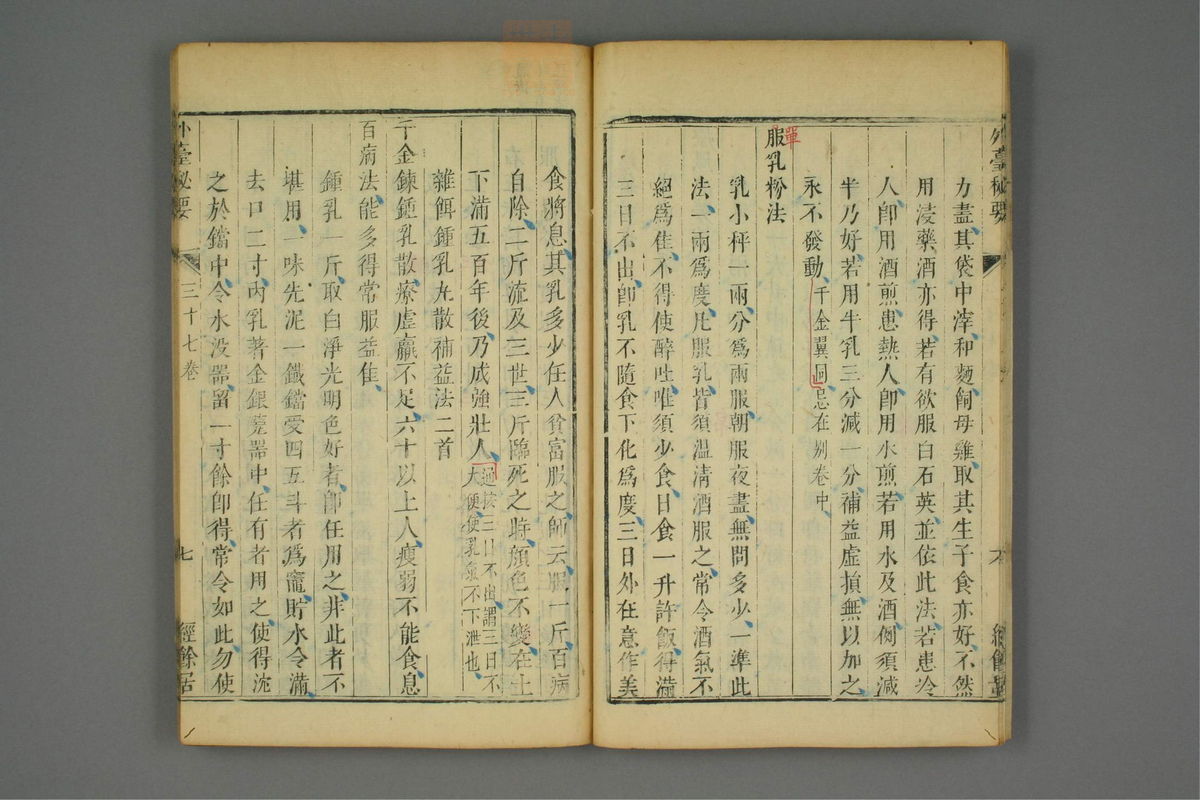 外臺秘要
力盡其袋中滓和麵飼母雞取其生子食亦好不然
用浸藥酒亦得若有欲服白石英並依此法若患冷
人卽用酒煎患熱人卽用水煎若用水及酒例須減
半乃好若用牛乳三分減一分補益虛損無以加之
永不發動千金翼同忌在別卷中
單
服乳粉法
乳小秤一兩分爲兩服朝服夜盡無問多少一準此
法一兩爲度凡服乳皆須溫淸酒服之常令酒氣不
絕爲佳不得使醉吐唯須少食日食一升許飯得滿
三日不出卽乳不隨食下化爲度三日外在意作美
食將息其乳多少任人貧富服之師云服一斤百病
自除二斤流及三世三斤臨死之時顔色不變在土
下滿五百年後乃成強壯人
通按三日不出謂三日不
大便使乳氣不下泄也
雜餌鍾乳丸散補益法二首
千金鍊鍾乳散療虛羸不足六十以上人瘦弱不能食息
百病法能多得常服益佳
鍾乳一斤取白淨光明色好者卽任用之非此者不
堪用一味先泥一鐵鐺受四五斗者爲竈貯水令滿
去口二寸內乳著金銀瓷器中任有者用之使得沈
之於鐺中令水沒器留一寸餘卽得常令如此勿使
外臺秘要
三十七卷
七
經餘居